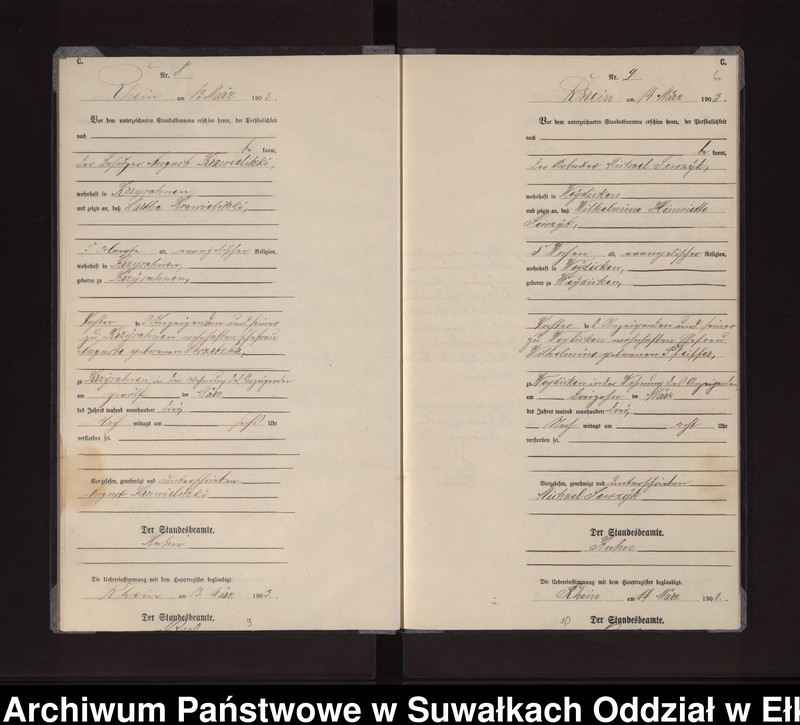 C.
Nr. 8
Rhein am 13 März 1903.
Vor dem unterzeichneten Standesbeamten erschien heute, der Persönlichkeit
nach
be kannt,
der Besitzer August
wohnhaft in
und zeigte an, daß Martha
5 Monate alt, evangelischer Religion,
wohnhaft in
geboren zu
Tochter des Anzeigenden und seiner
zu wohnhaften Ehefrau
Auguste geborenen
zu in der Wohnung des Anzeigenden
am zwölf ten März
des Jahres tausend neunhundert drei
Nach mittags um sechs Uhr
verstorben sei.
Vorgelesen, genehmigt und unterschrieben
August
Der Standesbeamte.
Die Uebereinstimmung mit dem Hauptregister beglaubigt.
Rhein am 13 März 1903.
Der Standesbeamte.
9
C.
6
Nr. 9
Rhein am 14 März 1903.
Vor dem unterzeichneten Standesbeamten erschien heute, der Persönlichkeit
nach
be kannt,
der Michael
wohnhaft in Weydicken
und zeigte an, daß Wilhelmine Henriette
5 Wochen alt, evangelischer Religion,
wohnhaft in Weydicken,
geboren zu Weydicken,
Tochter des Anzeigenden und seiner
zu Weydicken wohnhaften Ehefrau
Wilhelmine geborenen Pfeiffer,
zu Weydicken in der Wohnung des Anzeigenden
am dreizehn ten März
des Jahres tausend neunhundert drei
Nach mittags um acht Uhr
verstorben sei.
Vorgelesen, genehmigt und unterschrieben
Michael
Der Standesbeamte.
Die Uebereinstimmung mit dem Hauptregister beglaubigt.
Rhein am 14 März 1903.
10
Der Standesbeamte.
Archiwum Państwowe w Suwałkach Oddział w Eł